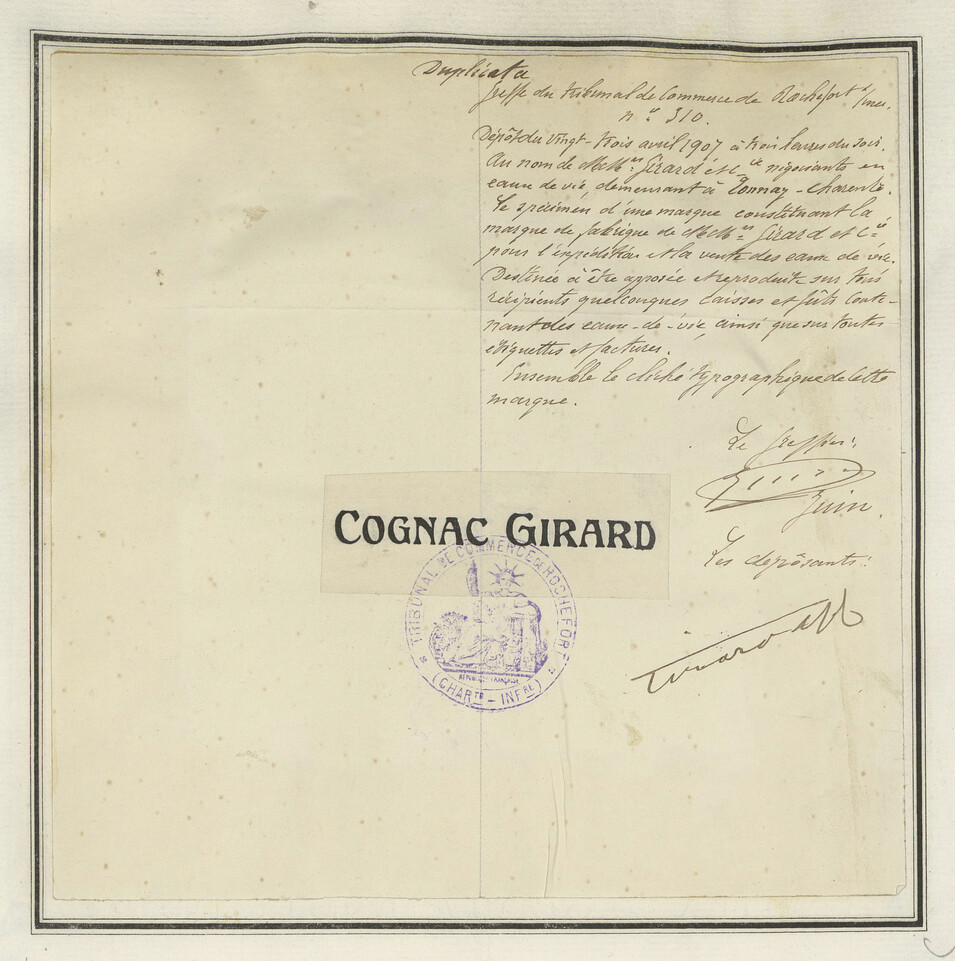 Duplicata
Greffe du Tribunal de Commerce de Rochefort s/mer.
n° 310.
Dépôt du Vingt-trois avril 1907 à trois heures du soir.
Au nom de MM^rs Girard & C^ie négociants en
eaux de vie demeurant à Tonnay-Charente.
Le spécimen d'une marque constituant la
marque de fabrique de MM^rs Girard et C^ie
pour l'expédition et la vente des eaux de vie.
Destinée à être apposée et reproduite sur tous
récipients quelconques caisses et fûts conte-
nant des eaux-de-vie, ainsi que sur toutes
étiquettes et factures.
Ensemble le cliché typographique de cette
marque.
Le Greffier:
COGNAC GIRARD
Les déposants:
TRIBUNAL DE COMMERCE DE ROCHEFORT
RÉPUBLIQUE FRANÇAISE
(CHAR^TE - INF^RE)